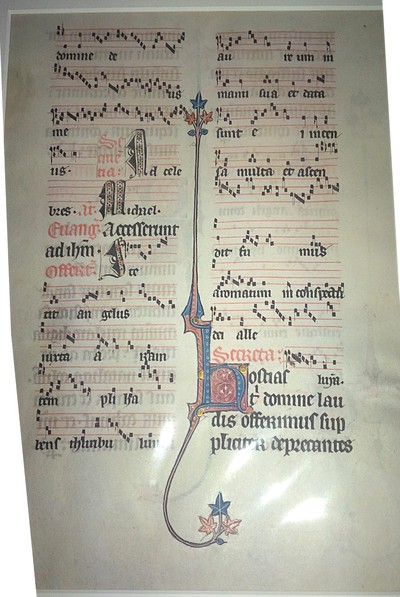 domine de
us
me
us. Se
que
tia: Ad cele
bres. At. Michael.
Euang. Accesserunt
ad ihm
Offert. Ste
tit an gelus
iuxta a ram
tem pli ha
bens thuribu lum
au re um in
manu sua et data
sunt e i incen
sa multa et ascen
dit fu mus
aromatum in conspectu
dei alle
Secreta:
Hostias luya.
t domine lau
dis offerimus sup
pliciter deprecantes